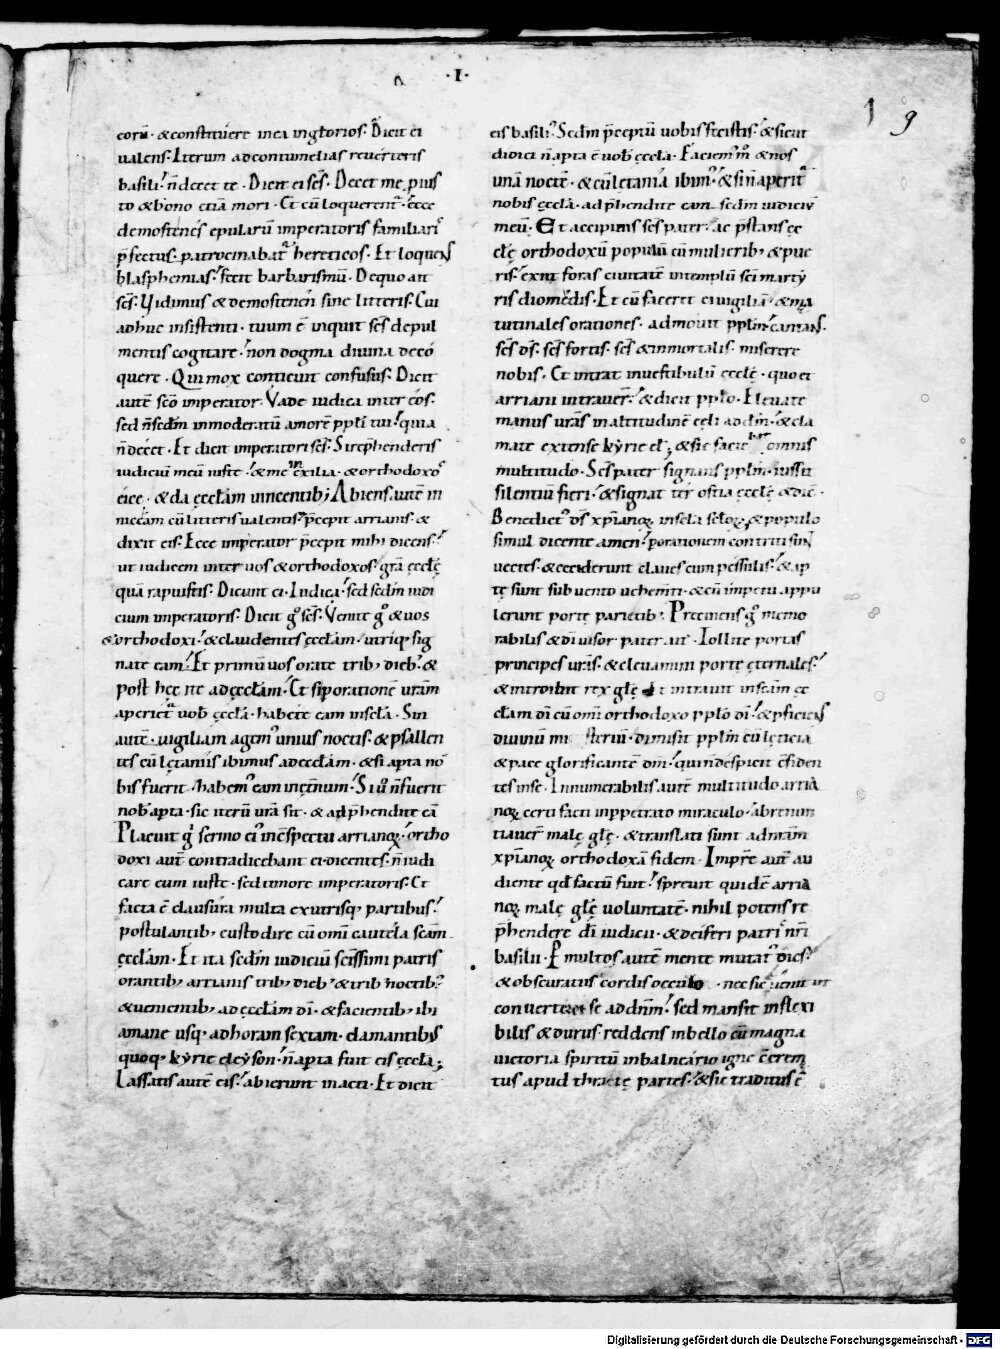 ·I·
9
corū· & constituere in ea inglorios· Dicit ei
ualens· Iterum ad contumelias reuerteris
basili· n̄ decet te· Dicit ei sc̄s· Decet me pius
to & bono etiā mori· Et cū loquerent᷑· ecce
demostenes epularū imperatoris familiari᷑
p̄fectus· patrocinabat᷑ hereticos· Et loquens
blasphemias· fecit barbarismū· De quo ait
sc̄s· Vidimus & demostenēn sine litteris· Cui
adhuc insistenti· tuum ē inquit sc̄s de pul
mentis cogitare· non dogma diuina deco
quere· Qui mox conticuit confusus· Dicit
autē sc̄o imperator· Vade iudica inter eos·
sed n̄ sc̄dm inmoderatū amorē pp̄li tui· quia
n̄ decet· Et dicit imperatori sc̄s· Si rep̄henderis
iudiciū meū iuste· & me in exilia· & orthodoxos
eice· & da ęcc̄lam uincentib;· Abiens autē in
niceam cū litteris ualentis· p̄cepit arrianis· &
dixit eis· Ecce imperator p̄cepit mihi dicens·
ut iudicem inter uos & orthodoxos· gr̄a ęcc̄lę
quā rapuistis· Dicunt ei· Iudica· sed sc̄dm iudi
cium imperatoris· Dicit g̊ sc̄s· Venite g̊ & uos
& orthodoxi· & claudentes ęcc̄lam· utriq; sig
nate eam· Et primū uos orate trib; dieb; &
post hęc ite ad ęcc̄lam· Et si p orationē ur̄am
aperiet᷑ uob̄ ęcc̄la· habete eam in sc̄la· Sin
autē· uigiliam agem᷑ unius noctis· & psallen
tes cū lętaniis ibimus ad ęcc̄lam· & si apta no
bis fuerit· habem᷑ eam in ęt̄num· Si u̅ n̄ fuerit
nob̄ apta· sic iterū ur̄a sit· & adp̄hendite eā
Placuit g̊ sermo ei᷑ in c̄spectu arrianoꝝ· ortho
doxi aut̄ contradicebant ei· dicentes· n̄ iudi
care eum iuste· sed timore imperatoris· Et
facta ē clausura multa ex utrisq; partibus·
postulantib; custodire cū omī cautela sc̄am
ęcc̄lam· Et ita sc̄dm iudiciū sc̄issimi patris
orantib; arrianis trib; dieb; & trib; noctib;
& uenientib; ad ęcc̄lam dī· & facientib; ibi
a mane usq; ad horam sextam· clamantibus
quoq; kyrie eleyson· n̄ apta fuit eis ęcc̄la·
Lassatis autē eis· abierunt inacti· Et dicit
eis basili᷑· Sc̄dm p̄ceptū uobis fecistis· & sicut
didici n̄ apta ē uob̄ ęcc̄la· Faciem᷑ m̊ & nos
unā noctē· & cū lętania ibim᷑· & si n̄ aperit᷑
nobis ęcc̄la· adp̄hendite eam sc̄dm iudiciū
meū· Et accipiens sc̄s pater· ac p̄stans ęc
cl̄ę orthodoxū populū cū mulierib; & pue
ris· exiit foras ciuitatē in templū sc̄i marty
ris diomedis· Et cū faceret ei uigiliā· & ma
tutinales orationes· admouit pp̄lm cantans·
sc̄s ds̄· sc̄s fortis· sc̄s & inmortalis· miserere
nobis· Et intrat in uestibulū ęcc̄lę· quo et
arriani intrauer̄· & dicit pp̄lo· Eleuate
manus ur̄as in altitudinē cęli ad dm̄· & cla
mate extense kyrie el̄·; & sic facit omnis
multitudo· Sc̄s pater signans pp̄lm· iussit
silentiū fieri· & signat ter ostia ęcc̄lę & dic̄·
Benedict᷑ ds̄ xp̄ianoꝝ in sęla sęl̄oꝝ· & populo
simul dicente amen· p orationem contriti sunt
uectes· & ceciderunt claues cum pessulis· & ap
tę sunt sub uento uehem̄ti· & cū impetu appu
lerunt portę parietib;· Precinens g̊ memo
rabilis & diuisor pater ait· Tollite portas
principes ur̄as· & eleuamini portę ęternales·
& introibit rex glę· Et intrauit in sc̄am ęc
clam dī cū omī orthodoxo pp̄lo dī· & p̄ficiens
diuinū mi sterium· dimisit pp̄lm cū lęticia
& pace glorificantē dm̄· qui n̄ despicit c̄fiden
tes in se· Innumerabilis autē multitudo arria
noꝝ certi facti in p petrato miraculo· abrenun
tiauer̄ malę glę· & translati sunt ad nr̄am
xp̄ianoꝝ orthodoxā fidem· Imp̄r aut̄ au
diente qd̄ factū fuit· spreuit quidē arria
noꝝ malę glę uoluntatē· nihil potens re
p̄hendere dī iudicii· & deiferi patri᷑ nr̄i
basilii· P multos autē mente mutat᷑ dies·
& obscuratus cordis oculo· nec sic uenit ut
conuerteret se ad dn̄m· sed mansit inflexi
bilis & durus· reddens in bello cū magna
uictoria spiritū in balneario igne c̄crem
tus apud thracię partes· & sic traditus ē
Digitalisierung gefördert durch die Deutsche Forschungsgemeinschaft - DFG